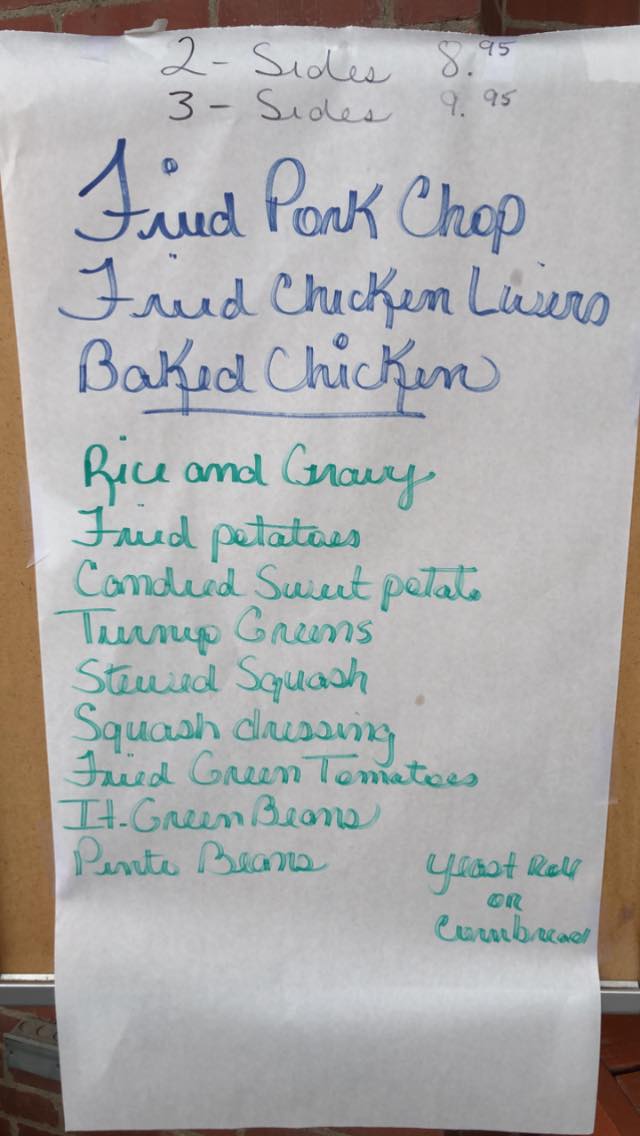 2 - Sides 8.95
3 - Sides 9.95
Fried Pork Chop
Fried Chicken Livers
Baked Chicken
Rice and Gravy
Fried potatoes
Candied Sweet potato
Turnup Greens
Stewed Squash
Squash dressing
Fried Green Tomatoes
It. Green Beans
Pinto Beans
Yeast Roll
OR
Cornbread